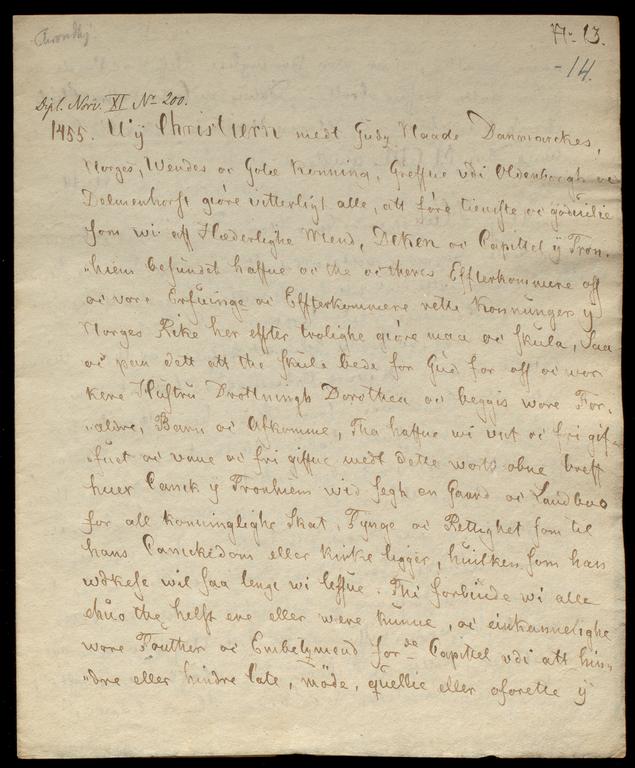 Trondhj.
N: 13.
- 14.
Dipl. Norv. XI No 200.
1455. Wÿ Christiern medt Gudz Naade Danmarckes,
Norges, Wendes oc Gote Konning, Greffue vdi Oldenborgh oc
Delmenhorst giöre vitterligt alle, att före tieniste oc gödwilie
som wi aff Hæderlighe Mend, Deken oc Capittel ÿ Tron-
"hiem befundet haffue oc the oc theres Effterkommere oss
oc vore Erfuinge oc Effterkommere rette Konnunger ÿ
Norges Rike her effter trolighe giöre maa oc skula, saa
oc paa dett att the skule bede for Gud for oss oc wor
kere Hustru Drottningh Dorothea oc beggis wore For-
"ældre, Barn oc Afkomme, Tha haffue wi vnt oc fri gif-
"fuet oc vnne oc fri giffue medt dette wort obne breff
huer Canick ÿ Tronhiem wid segh en Gaard oc Landboo
for all konninglighe Skat, Tynge oc Rettighet som til
hans Canickedom eller kirke ligger, huilken som han
wdkese wil saa lenge wi leffue. Thi forbiude wi alle
ehuo the helst ere eller were kunne, oc einkannelighe
wore Fouther oc Embetzmend forde Capittel vdi att hin-
"dre eller hindre late, möde, quellie eller oforette ÿ